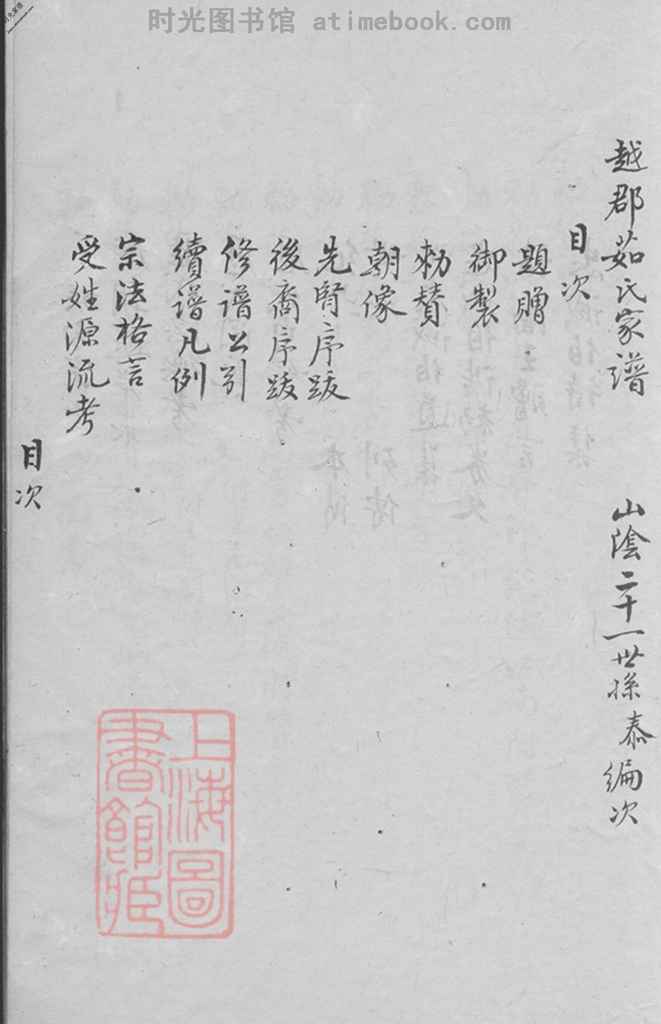 时光图书馆 atimebook.com
越郡茹氏家譜 山陰二十一世孫泰編次
目次
題贈
御製
勅贊
朝像
先賢序跋
後裔序跋
修譜公引
續譜凡例
宗法格言
受姓源流考
目次
上海圖
書館藏